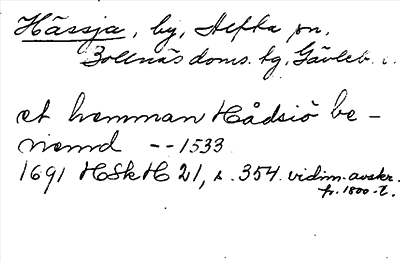 Hässja, by, Alfta sn,
Bollnäs doms. tg, Gävleb. l.
et hemman Hådsiö be-
niemd -- 1533
1691 HSkH 21, s. 354. vidim. avskr.
fr. 1800-t.